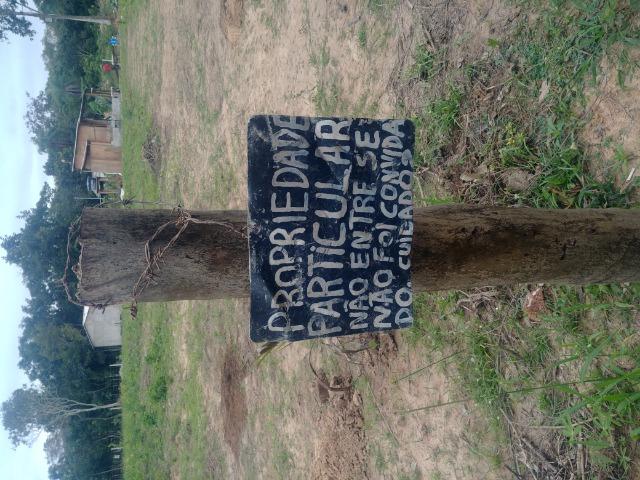 PROPRIEDADE
PARTICULAR
NÃO ENTRE SE
NÃO FOI CONVIDA
DO. CUIDADO